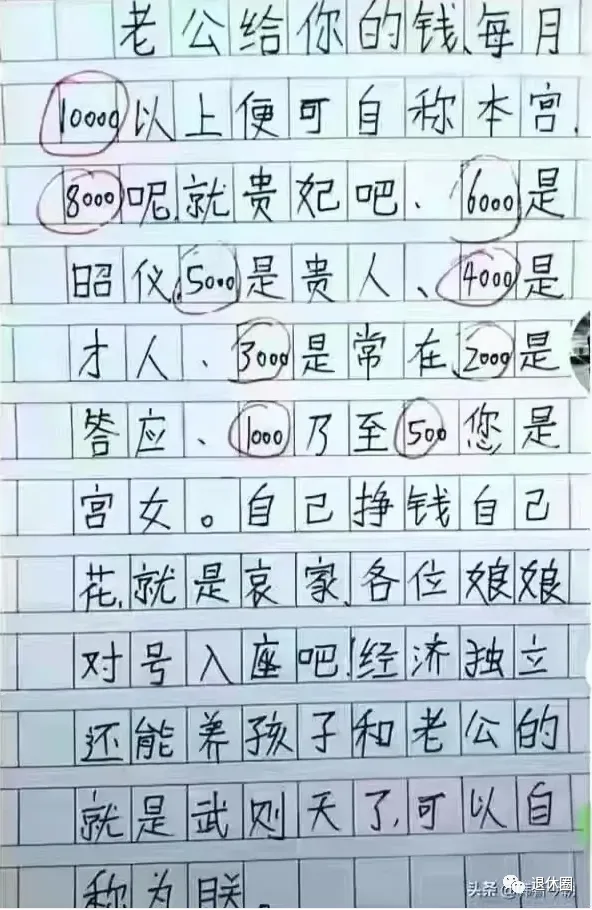 老公给你的钱、每月
10000以上便可自称本宫.
8000呢就贵妃吧、6000是
昭仪.5000是贵人、4000是
才人、3000是常在.2000是
答应、1000乃至500您是
宫女。自己挣钱自己
花.就是哀家.各位娘娘
对号入座吧!经济独立
还能养孩子和老公的
就是武则天了,可以自
称为朕。
头条
退休圈